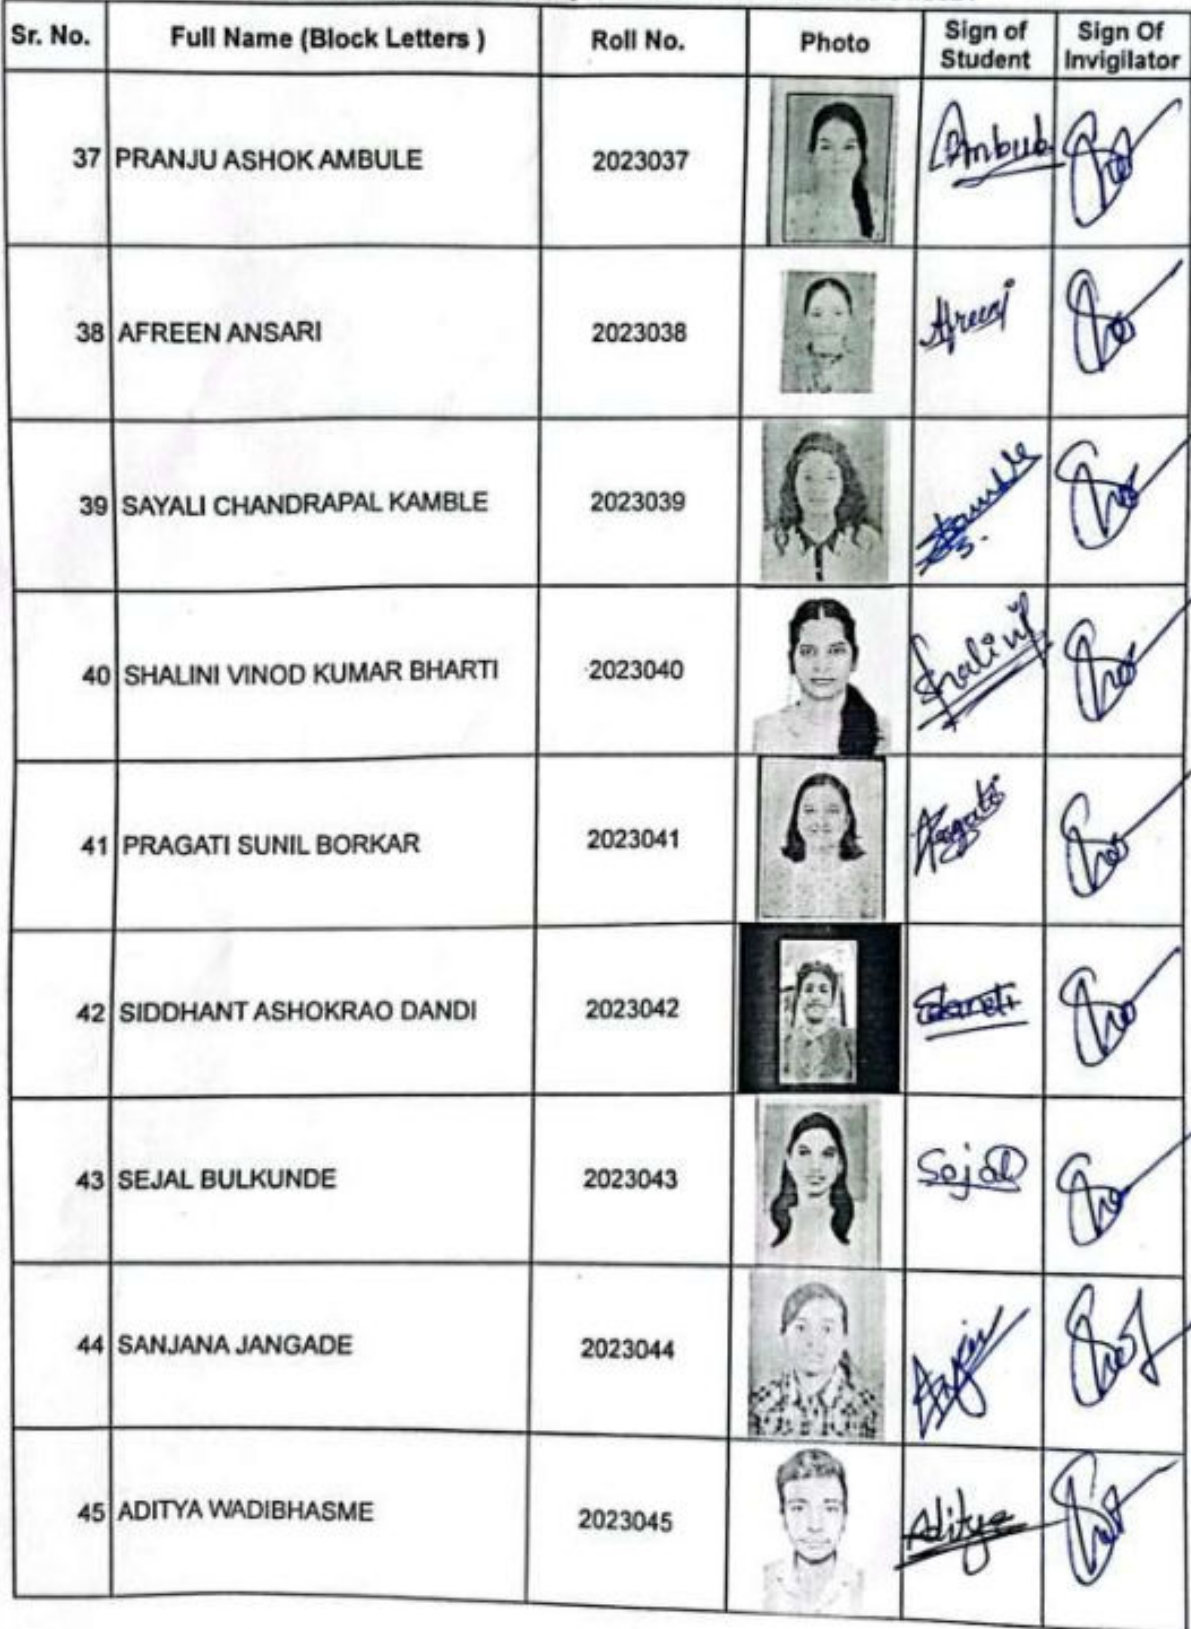 Sr. No. Full Name (Block Letters ) Roll No. Photo Sign of Student Sign Of Invigilator
37 PRANJU ASHOK AMBULE 2023037 Ambule
38 AFREEN ANSARI 2023038 Afreen
39 SAYALI CHANDRAPAL KAMBLE 2023039 Kamble S.
40 SHALINI VINOD KUMAR BHARTI 2023040 Shalini
41 PRAGATI SUNIL BORKAR 2023041 Pragati
42 SIDDHANT ASHOKRAO DANDI 2023042
43 SEJAL BULKUNDE 2023043 Sejal
44 SANJANA JANGADE 2023044
45 ADITYA WADIBHASME 2023045 Aditya